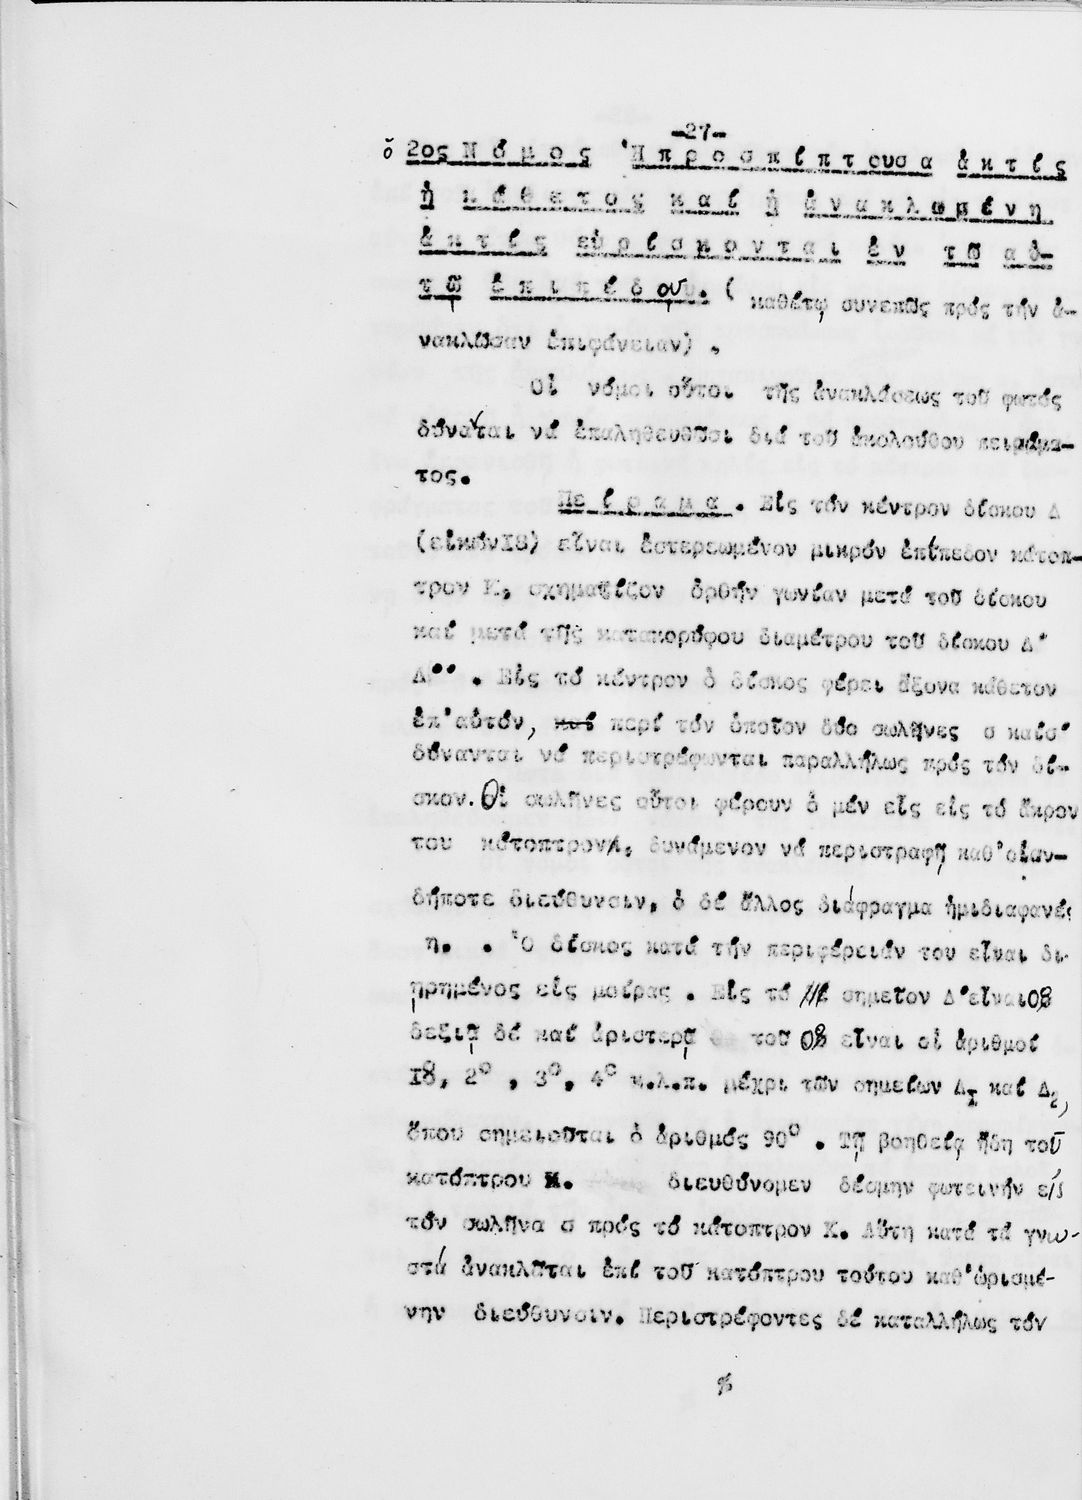 -27-
ὁ 2ος Ν ό μ ο ς Ἡ π ρ ο σ π ί π τ ουσ α ἀ κ τ ί ς
ἡ κ ά θ ε τ ο ς κ α ί ἡ ἀ ν α κ λ ω μ έ ν η
ἀ κ τ ί ς εὑ ρ ί σ κ ο ν τ α ι ἐν τῷ α ὐ-
τ ῷ ἐ π ι π έ δ ου. ( καθέτῳ συνεπῶς πρός τήν ἀ-
νακλῶσαν ἐπιφάνειαν) .
Οἱ νόμοι οὗτοι τῆς ἀνακλάσεως τοῦ φωτός
δύναται νά ἐπαληθευθῶσι διά τοῦ ἀκολούθου πειράμα-
τος.
Πε ί ρ α μ α . Εἰς τόν κέντρον δίσκου Δ
(εἰκών18) εἶναι ἐστερεωμένον μικρόν ἐπίπεδον κάτοπ-
τρον Κ, σχηματίζον ὀρθήν γωνίαν μετά τοῦ δίσκου
καί μετά τῆς κατακορύφου διαμέτρου τοῦ δίσκου Δ'
Δ'' . Εἰς τό κέντρον ὁ δίσκος φέρει ἄξονα κάθετον
ἐπ'αὐτόν, περί τόν ὁποῖον δύο σωλῆνες σ καίσ'
δύνανται νά περιστρέφωνται παραλλήλως πρός τόν δί-
σκον. Οἱ σωλῆνες οὗτοι φέρουν ὁ μέν εἷς εἰς τό ἄκρον
του κάτοπτρον, δυνάμενον νά περιστραφῇ καθ'οἱαν-
δήποτε διεύθυνσιν, ὁ δέ ἄλλος διάφραγμα ἡμιδιαφανές
η. . Ὁ δίσκος κατά τήν περιφέρειάν του εἶναι δι-
ῃρημένος εἰς μοίρας . Εἰς τό σημεῖον Δ'εἶναι0°
δεξιᾷ δέ καί ἀριστερᾷ τοῦ 0° εἶναι οἱ ἀριθμοί
1°, 2° , 3°, 4° κ.λ.π. μέχρι τῶν σημείων Δ₁ καί Δ₂,
ὅπου σημειοῦται ὁ ἀριθμός 90° . Τῇ βοηθείᾳ ἤδη τοῦ
κατόπτρου κ. διευθύνομεν δέσμην φωτεινήν εἰς
τόν σωλῆνα σ πρός τό κάτοπτρον Κ. Αὕτη κατά τά γνω-
στά ἀνακλᾶται ἐπί τοῦ κατόπτρου τούτου καθ'ὡρισμέ-
νην διεύθυνσιν. Περιστρέφοντες δέ καταλλήλως τόν